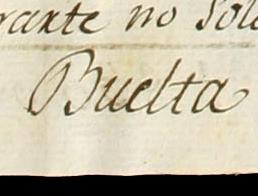 rante no Sol
Buelta